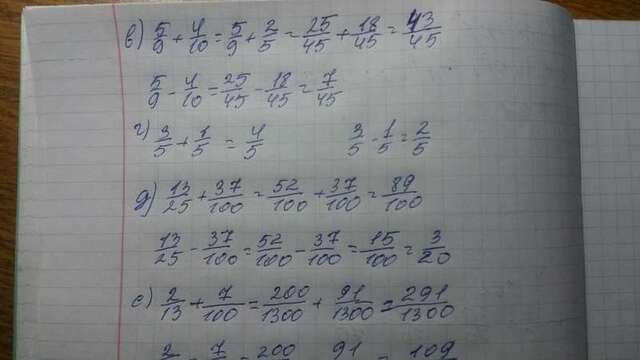 в) 5/9 + 4/10 = 5/9 + 2/5 = 25/45 + 18/45 = 43/45
5/9 - 4/10 = 25/45 - 18/45 = 7/45
г) 3/5 + 1/5 = 4/5 3/5 - 1/5 = 2/5
д) 13/25 + 37/100 = 52/100 + 37/100 = 89/100
13/25 - 37/100 = 52/100 - 37/100 = 15/100 = 3/20
е) 2/13 + 7/100 = 200/1300 + 91/1300 = 291/1300
2 7 200 91 109